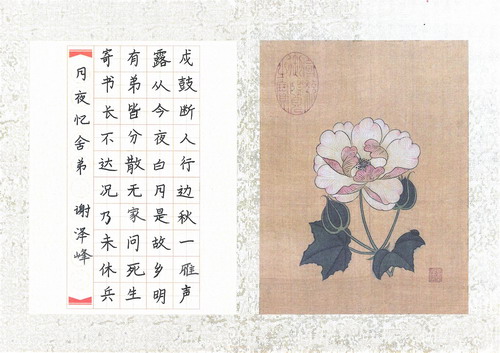 戍鼓断人行边秋一雁声
露从今夜白月是故乡明
有弟皆分散无家问死生
寄书长不达况乃未休兵
月夜忆舍弟 谢泽峰